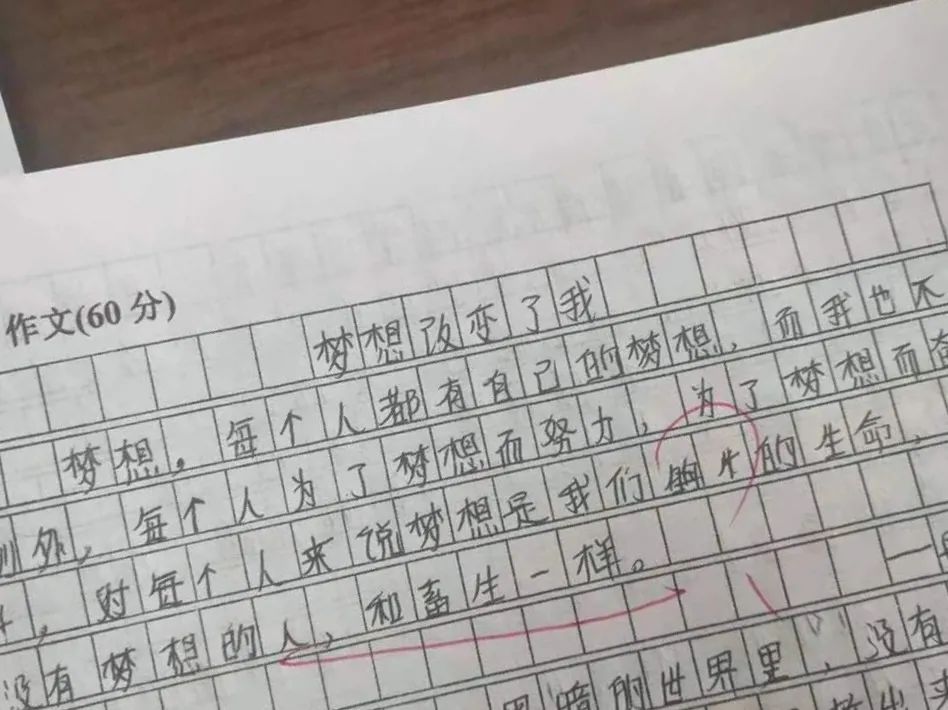 作文(60 分)
梦想改变了我
梦想。每个人都有自己的梦想,而我也不
外,每个人为了梦想而努力,为了梦想而
,对每个人来说梦想是我们的生命,
没有梦想的人,和畜生一样。
一
暗的世界里,没有